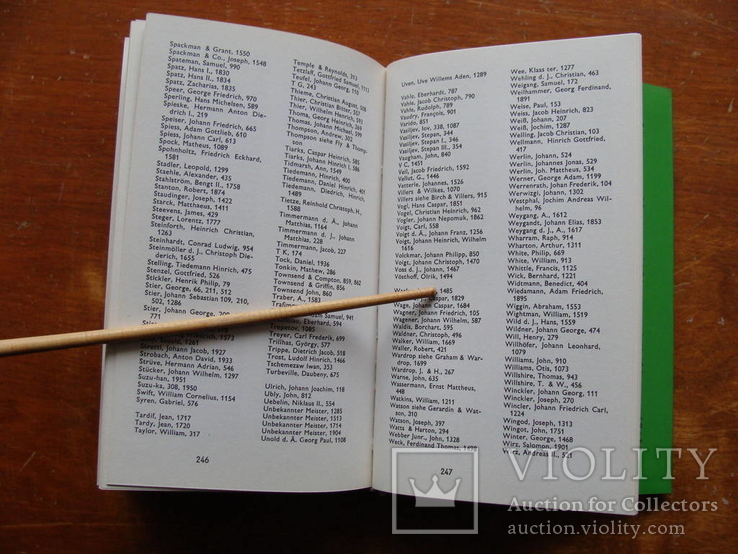 Spackman & Grant, 1550
Spackman & Co., Joseph, 1548
Spateman, Samuel, 990
Spatz, Hans I., 1830
Spatz, Hans II., 1834
Spatz, Zacharias, 1835
Speer, George Friedrich, 970
Sperling, Hans Michelsen, 589
Spieske, Hermann Anton Die-
drich I., 219
Speiser, Johann Friedrich, 665
Spiess, Adam Gottlieb, 610
Spiess, Johann Carl, 613
Spock, Matheus, 1089
Spohnholtz, Friedrich Eckhard,
1581
Stadler, Leopold, 1299
Staehle, Alexander, 435
Stahlström, Bengt II., 1758
Stanton, Robert, 1874
Staudinger, Joseph, 1422
Starck, Matthaeus, 1411
Steevens, James, 429
Steger, Lorentz, 1777
Steinforth, Heinrich Christian,
1263
Steinhardt, Conrad Ludwig, 954
Steinmöller d. J., Christoph Die-
derich, 1655
Stelling, Tiedemann Hinrich, 475
Stenzel, Gottfried, 526
Stickler, Henrik Philip, 79
Stier, George, 66, 211, 512
Stier, Johann Sebastian 109, 210,
502, 1286
Stretti, Johann Jacob, 1927
Strobach, Anton David, 1933
Strüve, Hermann Adrian, 546
Stücker, Johann Wilhelm, 1297
Suzu-han, 1951
Suzu-ka, 308, 1950
Swift, William Cornelius, 1154
Syren, Gabriel, 576
Tardif, Jean, 1717
Tardy, Jean, 1720
Taylor, William, 317
246
Temple & Reynolds, 313
Tetzlaff, Gottfried Samuel, 1113
Teufel, Johann Georg, 110
T G, 243
Thieme, Christian August, 508
Thier, Christian Bitter, 507
Thier, Wilhelm Hanrich, 591
Thoma, Georg Heinrich, 365
Thomas, Johann Michael, 599
Thompson, Andrew, 302
Thompson siehe Fly & Thomp-
son
Tiarks, Caspar Heinrich, 585
Tiarks, Johann Hinrich I., 586
Tidmarsh, Ann, 1549
Tiedemann, Hinrich, 400
Tiedemann, Daniel Hinrich, 401
Tiedemann, Diedrich Hinrich,
1487
Tietze, Reinhold Christoph, H.,
1588
Timmermann d. Ä., Johann
Matthias, 113
Timmermann d. J., Johann
Matthias, 228
Timmermann, Jacob, 227
T K, 174
Tock, Daniel, 1936
Tonkin, Matthew, 286
Townsend & Compton, 859, 862
Townsend & Griffin, 856
Townsend John, 860
Traber, A., 1583
Treyer, Carl Frederik, 699
Trillhas, György, 577
Trippe, Dietrich Jacob, 518
Trost, Ludolf Hinrich, 1466
Tschemezaw Iwan, 353
Turbeville, Daubeny, 675
Ulrich, Johann Joachim, 118
Ubly, John, 812
Uebelin, Niklaus II., 554
Unbekannter Meister, 1285
Unbekannter Meister, 1513
Unbekannter Meister, 1714
Unbekannter Meister, 1904
Unold d. Ä. Georg Paul, 1108
Uven, Uve Willems Aden, 1289
Vahle, Eberhardt, 787
Vahle, Jacob Christoph, 790
Vahle, Rudolph, 789
Vaudry, François, 901
Varido, 851
Vasiljev, Iov, 338, 1087
Vasiljev, Stepan, 344
Vasiljev, Stepan I., 346
Vasiljev, Stepan III., 354
Vaughan, John, 840
V C, 1451
Veil, Jacob Friedrich, 1592
Vellut, G., 1446
Vetterle, Johannes, 1526
Villers & Wilkes, 1070
Villers siehe Birch & Villers, 915
Vogl, Hans Caspar, 1851
Vogel, Christian Heinrich, 962
Vogler, Johann Nepomuk, 1862
Vogt, Carl, 558
Voigt d. Ä., Johann Franz, 1256
Voigt, Johann Heinrich Wilhelm
1616
Volckmar, Johann Philipp, 850
Voigt, Johann Christoph, 1470
Vos d. J., Johann, 1467
Vösthoff, Olrik, 1494
Wage, Johann Caspar, 1684
Wagner, Johann Friedrich, 105
Wagener, Johann Wilhelm, 587
Waldis, Borchart, 595
Waldner, Christoph, 496
Walker, William, 1669
Waller, Robert, 421
Wardrop siehe Graham & War-
drop, 1699
Wardrop, J. & H., 267
Warse, John, 635
Wassermann, Ernst Mattheus,
448
Watkins, William, 1211
Watson siehe Gerardin & Wat-
son, 310
Watson, Joseph, 397
Watts & Harton, 294
Webber Junr., John, 1328
Weck, Ferdinand Thomas, 1498
247
Wee, Klaas ter, 1277
Wehling d. J., Christian, 463
Weigang, Samuel, 172
Weilhammer, Georg Ferdinand,
1891
Weise, Paul, 153
Weiss, Jacob Heinrich, 823
Weiß, Johann, 207
Weiß, Johann, 1287
Welling, Jacob Christian, 103
Wellmann, Hinrich Gottfried,
417
Werlin, Johann, 524
Werlin, Johannes Jonas, 529
Werlin, Joh. Mattheus, 534
Werner, George Adam, 1199
Werrenrath, Johan Frederik, 104
Werwizgi, Johann, 1002
Westphal, Johann Andreas Wil-
helm, 96
Weygang, A., 1612
Weygandt, Johann Elias, 1853
Weygang d. J., A., 1617
Wharram, Ralph, 914
Wharton, Arthur, 1311
White, Philip, 669
White, William, 913
Whittle, Francis, 1125
Wick, Bernhard, 1221
Widtmann, Benedict, 404
Wiedamann, Adam Friedrich,
1895
Wiggin, Abraham, 1553
Wightman, William, 1519
Wild d. J., Hans, 1559
Wildner, Johann George, 474
Will, Henry, 279
Willhöfer, Johann Leonhard,
1079
Williams, John, 910
Williams, Otis, 1073
Willshire, Thomas, 943
Willshire, T. & W., 456
Winckler, Johann Georg, 111
Winckler, Joseph, 270
Wincler, Johann Friedrich Carl,
1224
Wingod, Joseph, 1313
Wingot, John, 1751
Winter, George, 1468
Wirz, Salomon, 1901
Wirz, Andreas II., 521
VIOLITY
Auction for Collectors
auction.violity.com